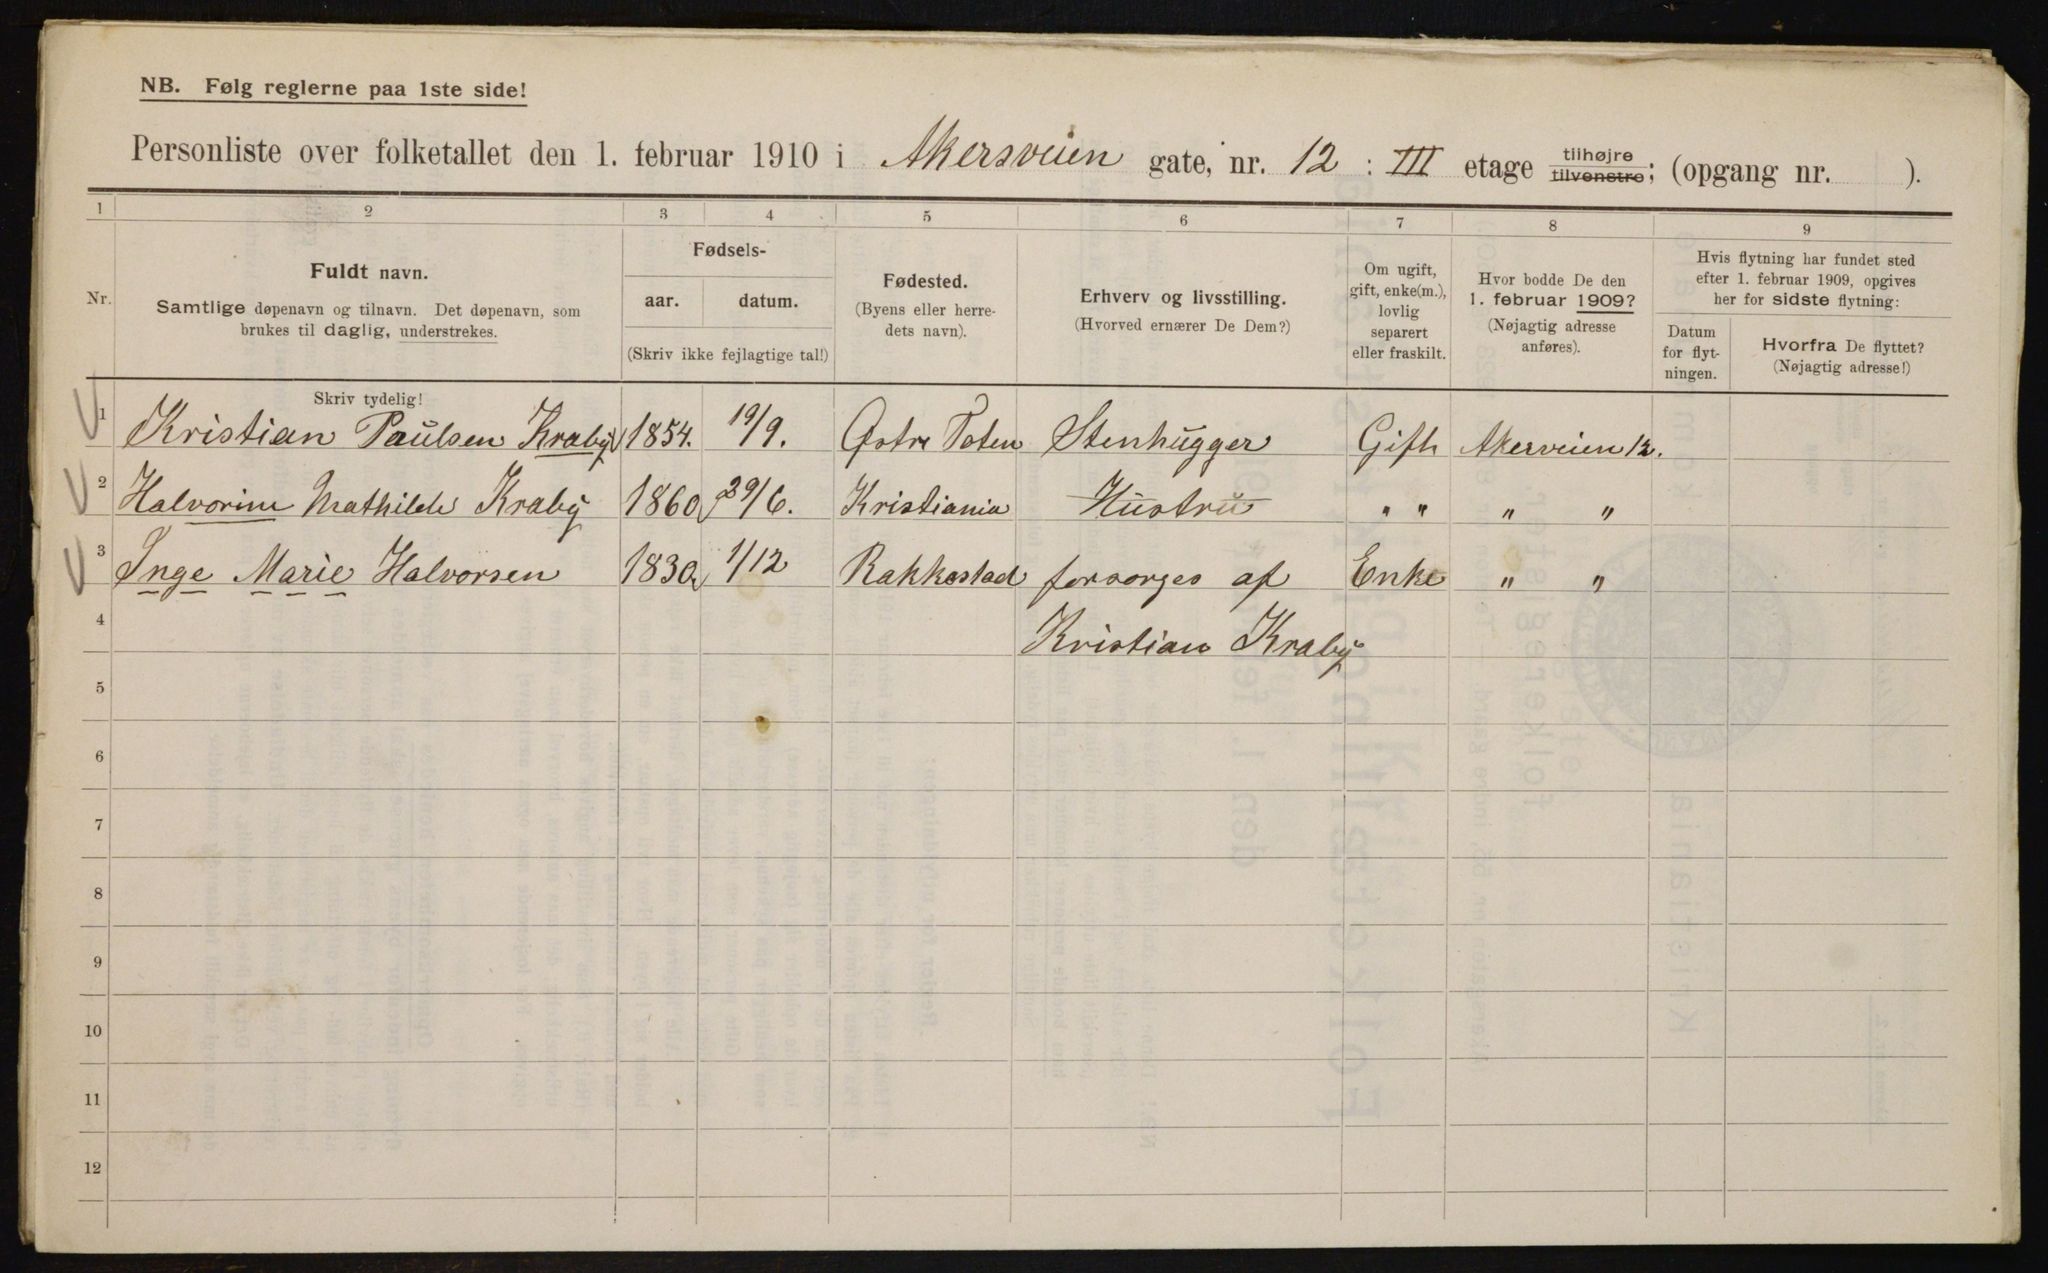 NB. Følg reglerne paa 1ste side!
Personliste over folketallet den 1. februar 1910 i Akersveien gate, nr. 12 : III etage tilhøjre tilvenstre; (opgang nr. ).
1 2 3 4 5 6 7 8 9
Nr.
Fuldt navn.
Samtlige døpenavn og tilnavn. Det døpenavn, som
brukes til daglig, understrekes.
Fødsels-
aar. datum.
(Skriv ikke fejlagtige tal!)
Fødested.
(Byens eller herre-
dets navn).
Erhverv og livsstilling.
(Hvorved ernærer De Dem?)
Om ugift,
gift, enke(m.),
lovlig
separert
eller fraskilt.
Hvor bodde De den
1. februar 1909?
(Nøjagtig adresse
anføres).
Hvis flytning har fundet sted
efter 1. februar 1909, opgives
her for sidste flytning:
Datum
for flyt-
ningen.
Hvorfra De flyttet?
(Nøjagtig adresse!)
Skriv tydelig!
1 Kristian Paulsen Kraby 1854. 19/9. Østre Toten Stenhugger Gift Akersveien 12.
2 Halvorine Mathilde Kraby 1860 29/6. Kristiania Hustru " " " "
3 Inge Marie Halvorsen 1830 1/12 Rakkestad forsorges af Enke " "
4 Kristian Kraby
5
6
7
8
9
10
11
12